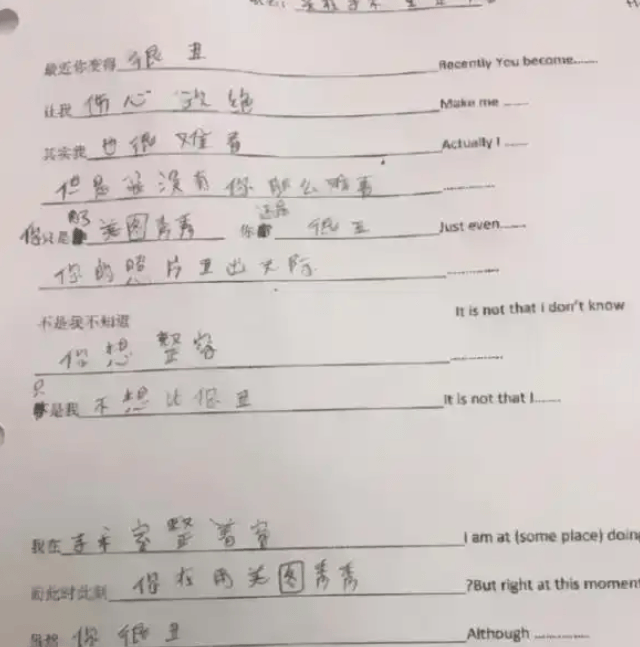 最近你变得 很丑 Recently You become.......
让我 伤心欲绝 Make me ......
其实我 也很难看 Actually I ......
但是我没有你那么难看 ............
你只是 美图秀秀 你还是 很丑 Just even......
你的照片丑出天际 ............
不是我不知道 It is not that i don't know
你想整容 ............
只是我 不想比你丑 It is not that I.......
我在 手术室整着容 I am at (some place) doing
而此时此刻 你在用美图秀秀 ?But right at this moment
虽然 你很丑 Although ............